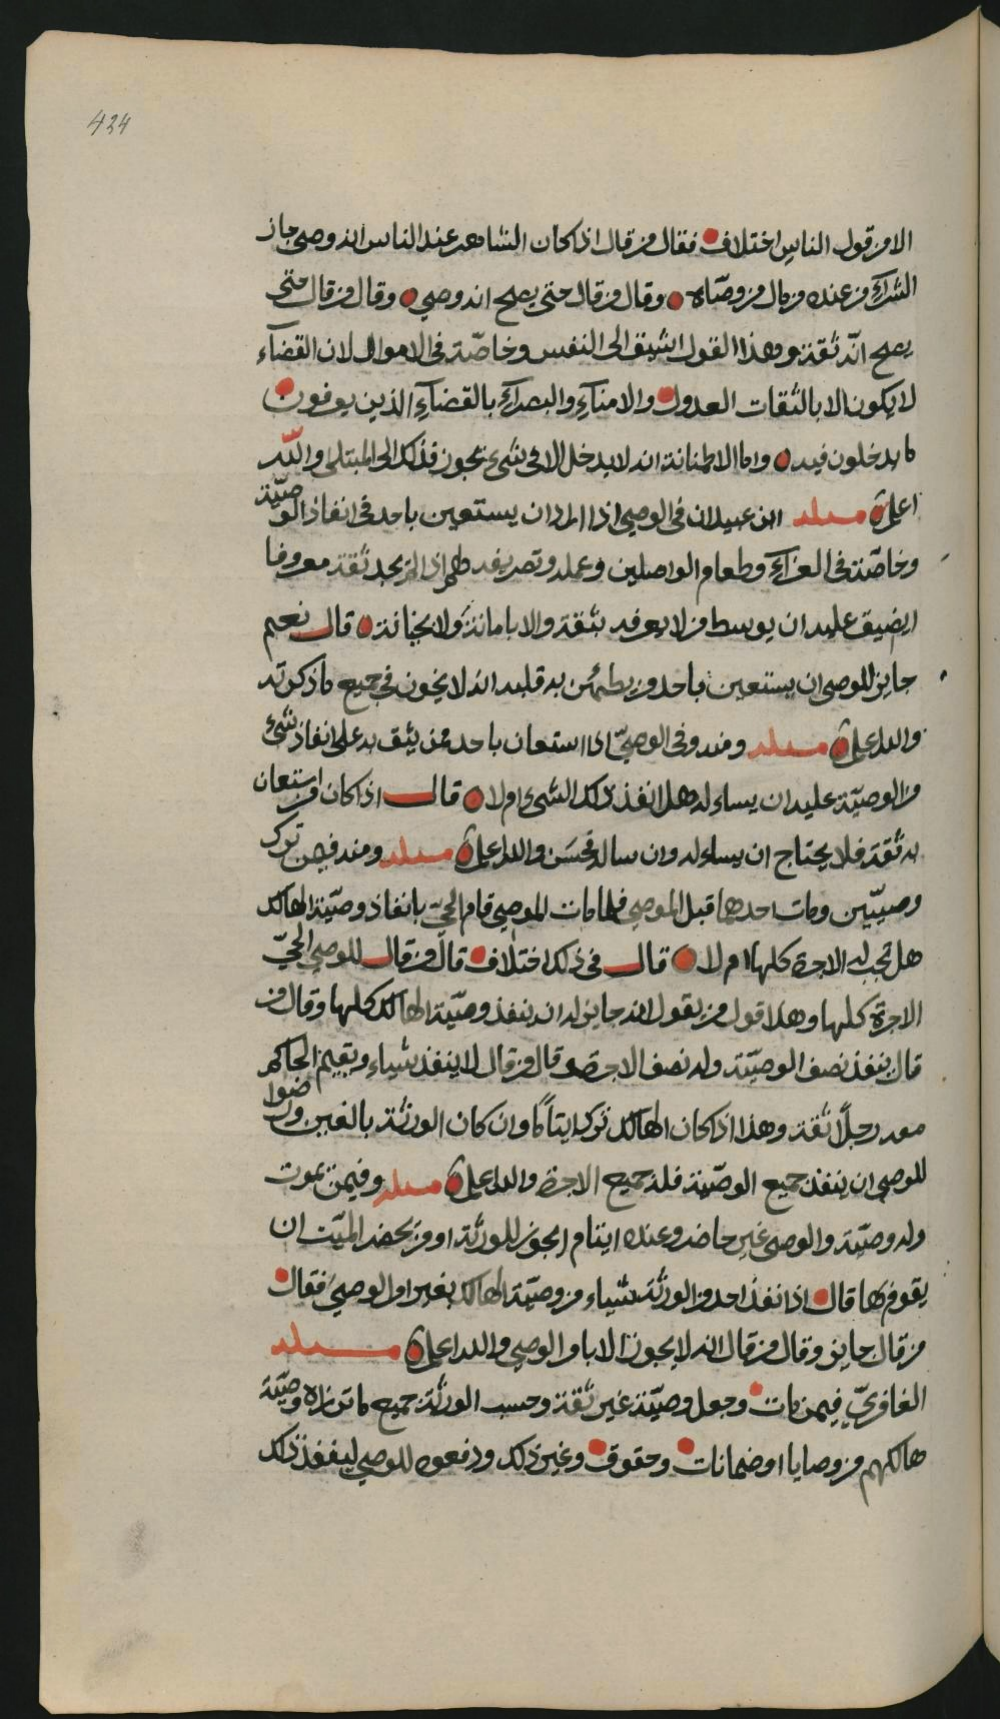 424
الا من قول الناس اختلاف فقال من قال اذا كان الشاهر عند الناس انه وصي جاز
الشرآء من عنده من مال من وصّاه وقال من قال حتى يصح انه وصي وقال من قال حتى
يصح انّه ثقة وهذا القول اشيق الى النفس وخاصّة في الاموال لان القضآء
لا يكون الا بالثقات العدول والامنآء والبصرآء بالقضآء الذين يعرفون
ما يدخلون فيه واما الاطمانانة انه لا يدخل الا في شيء يجوز فذلك الى المبتلى والله
اعلم مسئلة ابن عبيدان في الوصي اذا اراد ان يستعين باحد في انفاذ الوصيّة
وخاصّة في العزآء وطعام الواصلين وعمله وتصريفه لهم اذ لم يجد ثقة معروفا
ايضيق عليه ان يوسط من لا يعرفه بثقة والا بامانة ولا بخيانة قال نعم
جايز للوصي ان يستعين باحد من يطمئن به قلبه انه لا يخون في جميع ما ذكرته
والله اعلم مسئلة ومنه وفي الوصيّ اذا استعان باحد ممن يثق به على انفاذ شئ
من الوصيّة عليه ان يساءله هل انفذ ذلك الشيء ام لا قال اذا كان من استعان
به ثقة فلا يحتاج ان يساءله وان ساله فحسَن والله اعلم مسئلة ومنه فيمن ترك
وصييّين ومات احدهما قبل الموصي فلما مات الموصي قام الحيّ بانفاذ وصيّة الهالك
هل تجب له الاجرة كلها ام لا قال في ذلك اختلاف قال من قال للوصي الحيّ
الاجرة كلها وهذا قول من يقول انه جايز له ان ينفذ وصيّة الهالك كلها وقال من
قال ينفذ نصف الوصيّة وله نصف الاجرة وقال من قال لا ينفذ شياء ويقيم الحاكم
معه رجلًا ثقة وهذا اذا كان الهالك ترك ايتاًما وان كان الورثة بالغين ورضوا
للوصي ان ينفذ جميع الوصيّة فله جميع الاجرة والله اعلم مسئلة وفيمن يموت
وله وصيّة والوصي غير حاضر وعنده ايتام ايجوز للورثة او من يحضر الميّت ان
يقوم بها قال اذا نفذ احد من الورثة شياء من وصيّة الهالك بغير امر الوصي فقال
من قال جايز وقال من قال انه لا يجوز الا بامر الوصي والله اعلم مسئلة
الغافريّ فيمن مات وجعل وصيّة غير ثقة وحسب الورثة جميع ما وصيّة
هالكهم من وصايا او ضمانات وحقوق وغير ذلك ودفعوه للوصي لينفذ ذلك